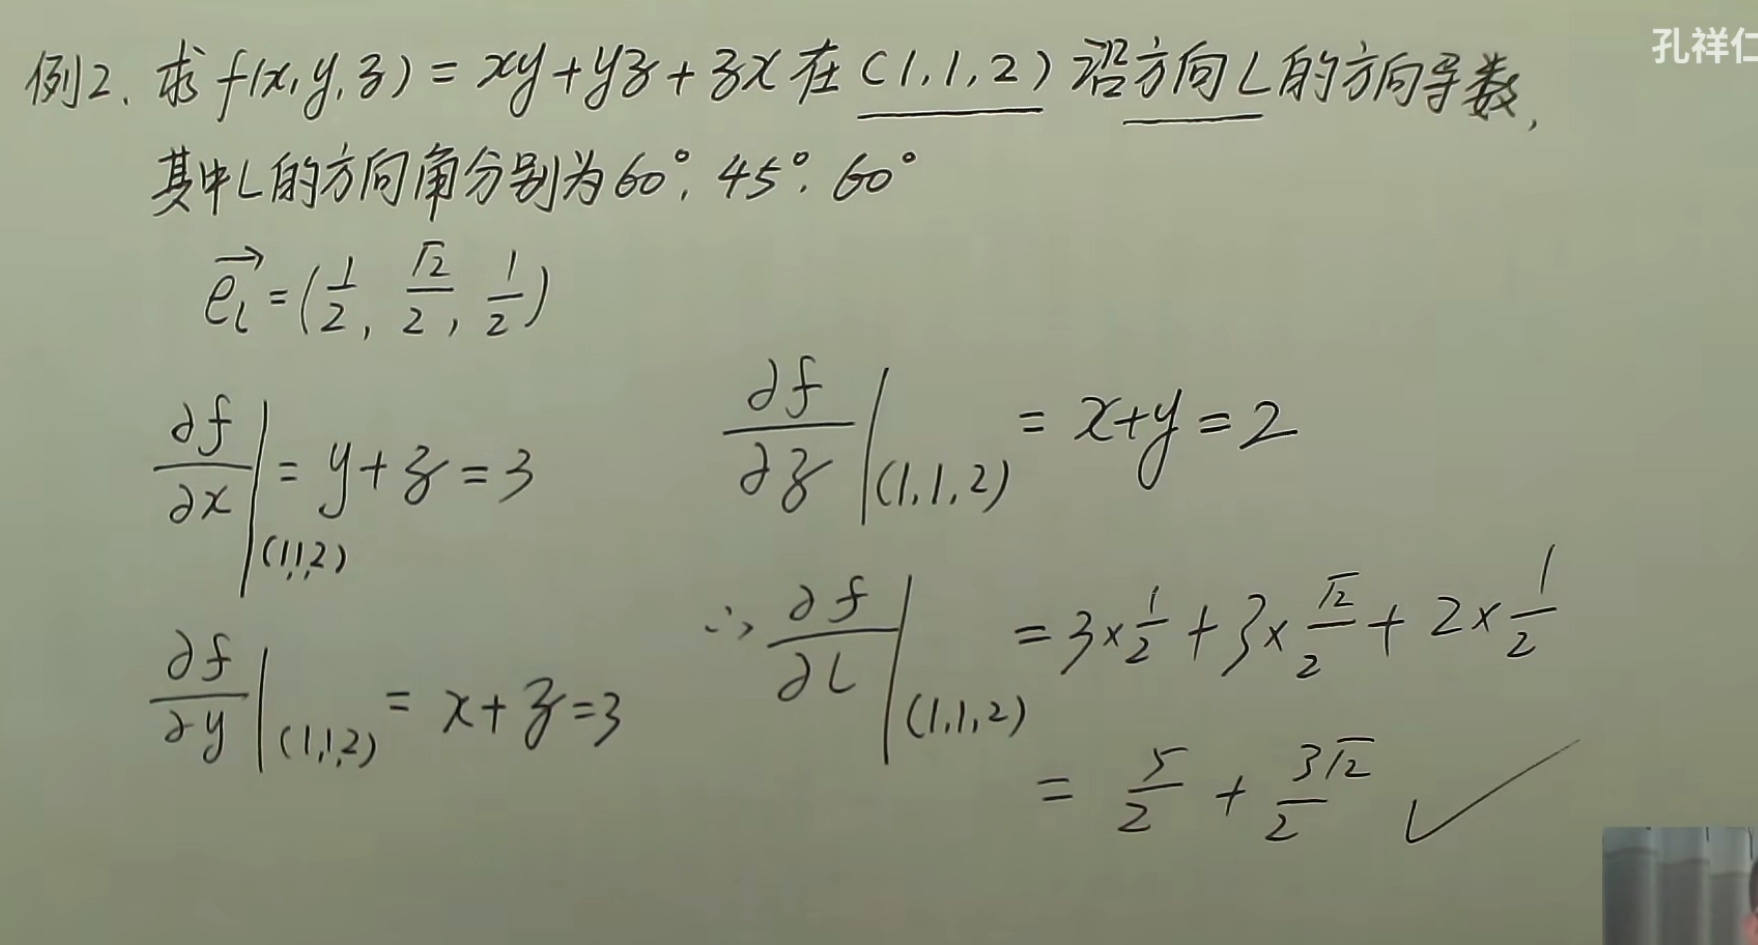 孔祥仁
例2. 求 f(x,y,z) = xy+yz+zx 在 (1,1,2) 沿方向 L 的方向导数,
其中 L 的方向角分别为 60°, 45°, 60°
\vec{e_l} = (1/2, √2/2, 1/2)
∂f/∂x |(1,1,2) = y+z = 3
∂f/∂y |(1,1,2) = x+z = 3
∂f/∂z |(1,1,2) = x+y = 2
∴ ∂f/∂l |(1,1,2) = 3×1/2 + 3×√2/2 + 2×1/2
= 5/2 + 3√2/2 ✓